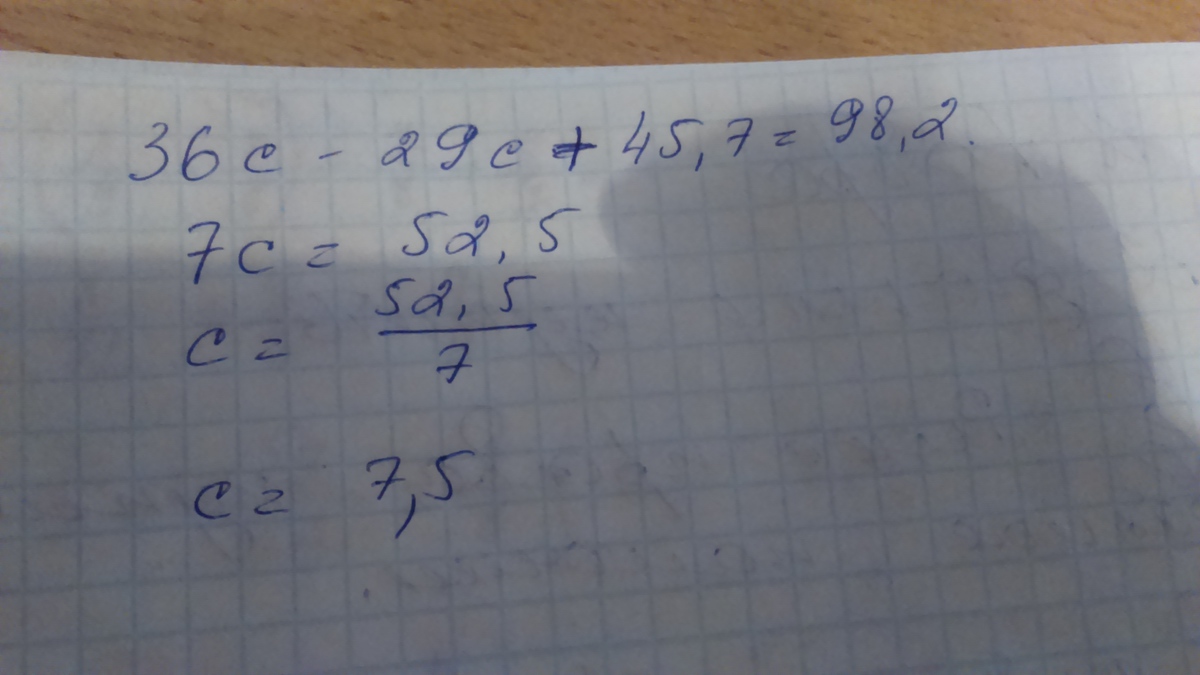 36c - 29c + 45,7 = 98,2.
7c = 52,5
c = 52,5/7
c = 7,5